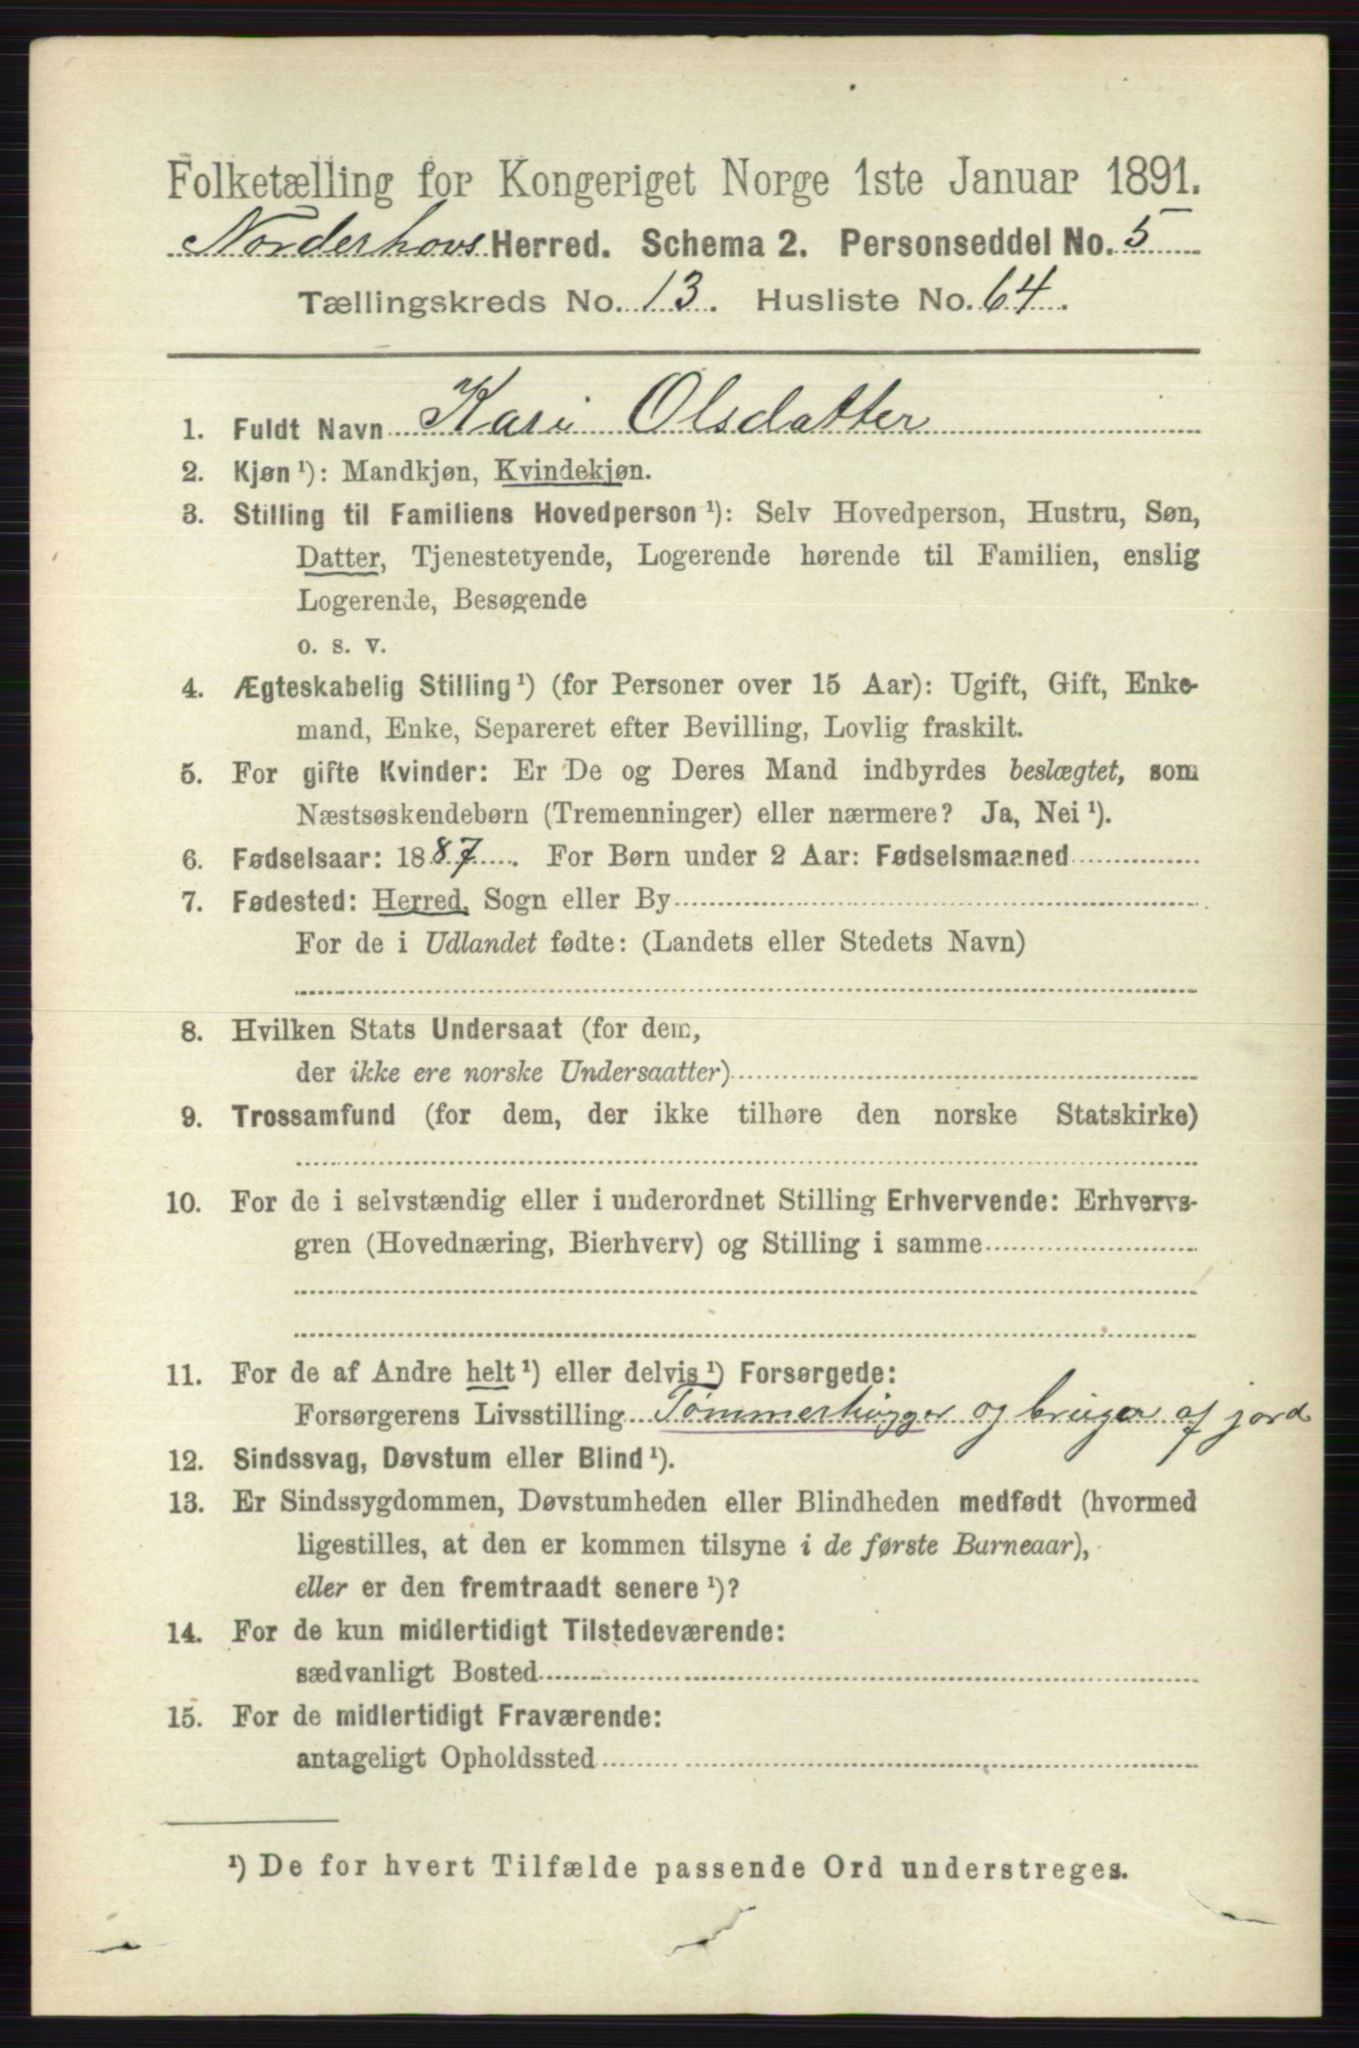 Folketælling for Kongeriget Norge 1ste Januar 1891.
Norderhovs Herred. Schema 2. Personseddel No. 5
Tællingskreds No. 13. Husliste No. 64.
1. Fuldt Navn Kari Olsdatter
2. Kjøn ¹): Mandkjøn, Kvindekjøn.
3. Stilling til Familiens Hovedperson ¹): Selv Hovedperson, Hustru, Søn,
Datter, Tjenestetyende, Logerende hørende til Familien, enslig
Logerende, Besøgende
o. s. v.
4. Ægteskabelig Stilling ¹) (for Personer over 15 Aar): Ugift, Gift, Enke-
mand, Enke, Separeret efter Bevilling, Lovlig fraskilt.
5. For gifte Kvinder: Er De og Deres Mand indbyrdes beslægtet, som
Næstsøskendebørn (Tremenninger) eller nærmere? Ja, Nei ¹).
6. Fødselsaar: 1887. For Børn under 2 Aar: Fødselsmaaned
7. Fødested: Herred, Sogn eller By
For de i Udlandet fødte: (Landets eller Stedets Navn)
8. Hvilken Stats Undersaat (for dem,
der ikke ere norske Undersaatter)
9. Trossamfund (for dem, der ikke tilhøre den norske Statskirke)
10. For de i selvstændig eller i underordnet Stilling Erhvervende: Erhvervs-
gren (Hovednæring, Bierhverv) og Stilling i samme
11. For de af Andre helt ¹) eller delvis ¹) Forsørgede:
Forsørgerens Livsstilling Tømmerhugger og bruger af jord
12. Sindssvag, Døvstum eller Blind ¹).
13. Er Sindssygdommen, Døvstumheden eller Blindheden medfødt (hvormed
ligestilles, at den er kommen tilsyne i de første Barneaar),
eller er den fremtraadt senere ¹)?
14. For de kun midlertidigt Tilstedeværende:
sædvanligt Bosted
15. For de midlertidigt Fraværende:
antageligt Opholdssted
¹) De for hvert Tilfælde passende Ord understreges.